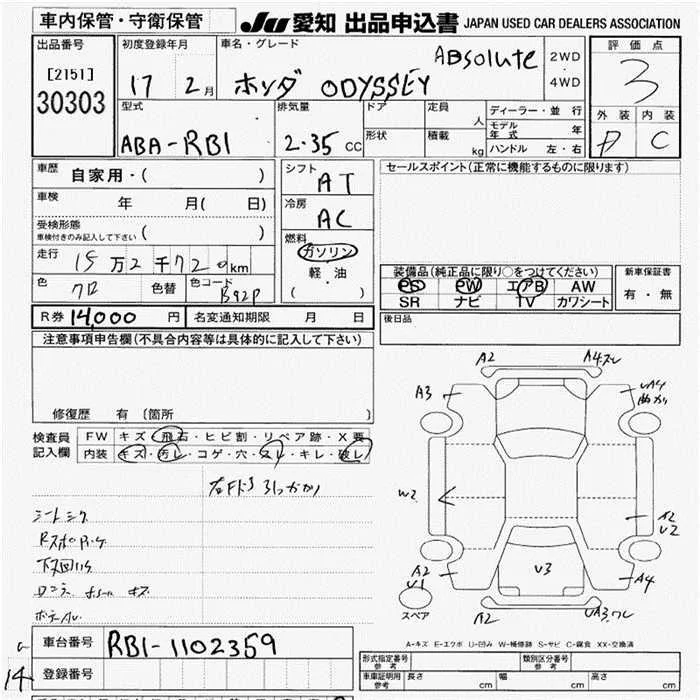 車内保管・守衛保管
JU 愛知 出品申込書 JAPAN USED CAR DEALERS ASSOCIATION
出品番号
[2151]
30303
初度登録年月
17 2月
車名・グレード
ホンダ ODYSSEY ABsolute
2WD
・
4WD
評価点
3
外装 内装
D C
型式
ABA-RB1
排気量
2.35 CC
ドア
形状
定員 人
積載 kg
ディーラー・並行
モデル年式 年
ハンドル 左・右
車歴 自家用・( )
車検 年 月( 日)
受検形態
車検付きのみ記入して下さい ( )
走行 15万2千720km
色 クロ 色替 色コード B92P
シフト AT
冷房 AC
燃料
ガソリン
軽・油
( )
セールスポイント(正常に機能するものに限ります)
装備品(純正品に限り○をつけてください)
PS PW エアB AW
SR ナビ TV カワシート
新車保証書
有・無
R券 14,000 円 名変通知期限 月 日
後日品
注意事項申告欄(不具合内容等は具体的に記入して下さい)
修復歴 有 〔箇所 〕
検査員
記入欄
FW キズ・飛石・ヒビ割・リペア跡・X要
内装 キズ・汚レ・コゲ・穴・スレ・キレ・破レ
シートシワ
下回り
A2 A4スレ
A3
UA4
曲がり
W2
A2
U2
A2
U1
U3
A4
A2
スペア
A-キズ E-エクボ U-凹み W-補修跡 S-サビ C-腐食 XX-交換済
車台番号 RB1-1102359
登録番号
14
形式指定番号
参考
類別区分番号
参考
車庫証明用
参考
長さ cm 幅 cm 高さ cm